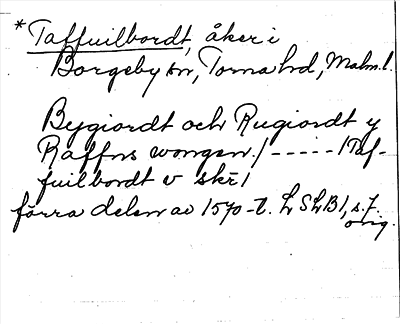 * Taffuilbordt, åker i
Borgeby sn, Torna hd, Malm.l.
Bygiordt och Rugiordt y
Raffns wongen. / ----- / Taf-
fuilbordt v skr /
förra delen av 1570-t. LSLB 1, s. 7.
orig.